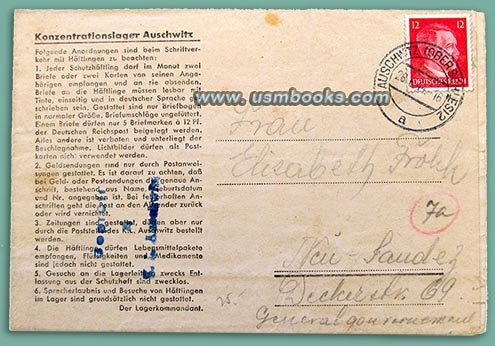 Konzentrationslager Auschwitz
Folgende Anordnungen sind beim Schriftver-
kehr mit Häftlingen zu beachten:
1. Jeder Schutzhäftling darf im Monat zwei
Briefe oder zwei Karten von seinen Ange-
hörigen empfangen und an sie absenden.
Die Briefe an die Häftlinge müssen lesbar mit
Tinte, einzeilig und in deutscher Sprache ge-
schrieben sein. Gestattet sind nur Briefbogen
in normaler Größe. Briefumschläge ungefüttert.
Einem Briefe dürfen nur 5 Briefmarken à 12 Pf.
der Deutschen Reichspost beigelegt werden.
Alles andere ist verboten und unterliegt der
Beschlagnahme. Lichtbilder dürfen als Post-
karten nicht verwendet werden.
2. Geldsendungen sind nur durch Postanwei-
sungen gestattet. Es ist darauf zu achten, daß
bei Geld- oder Postsendungen die genaue An-
schrift, bestehend aus Name, Geburtsdatum
und Nr. angegeben ist. Bei fehlerhaften An-
schriften geht die Post an den Absender zurück
oder wird vernichtet.
3. Zeitungen sind gestattet, dürfen aber nur
durch die Poststelle Auschwitz bestellt
werden.
4. Die Häftlinge dürfen Lebensmittelpakete
empfangen, Flüssigkeiten und Medikamente
sind jedoch nicht gestattet.
5. Gesuche an die Lagerleitung zwecks Ent-
lassung aus der Schutzhaft sind zwecklos.
6. Sprecherlaubnis und Besuche von Häftlingen
im Lager sind grundsätzlich nicht gestattet.
Der Lagerkommandant.
www.usmbooks.com
12 12
DEUTSCHES REICH
AUSCHWITZ (OBERSCHLES) 2
a
Frau
Elisabeth
7a
Neu-Sandez
69
Generalgouvernement
25.